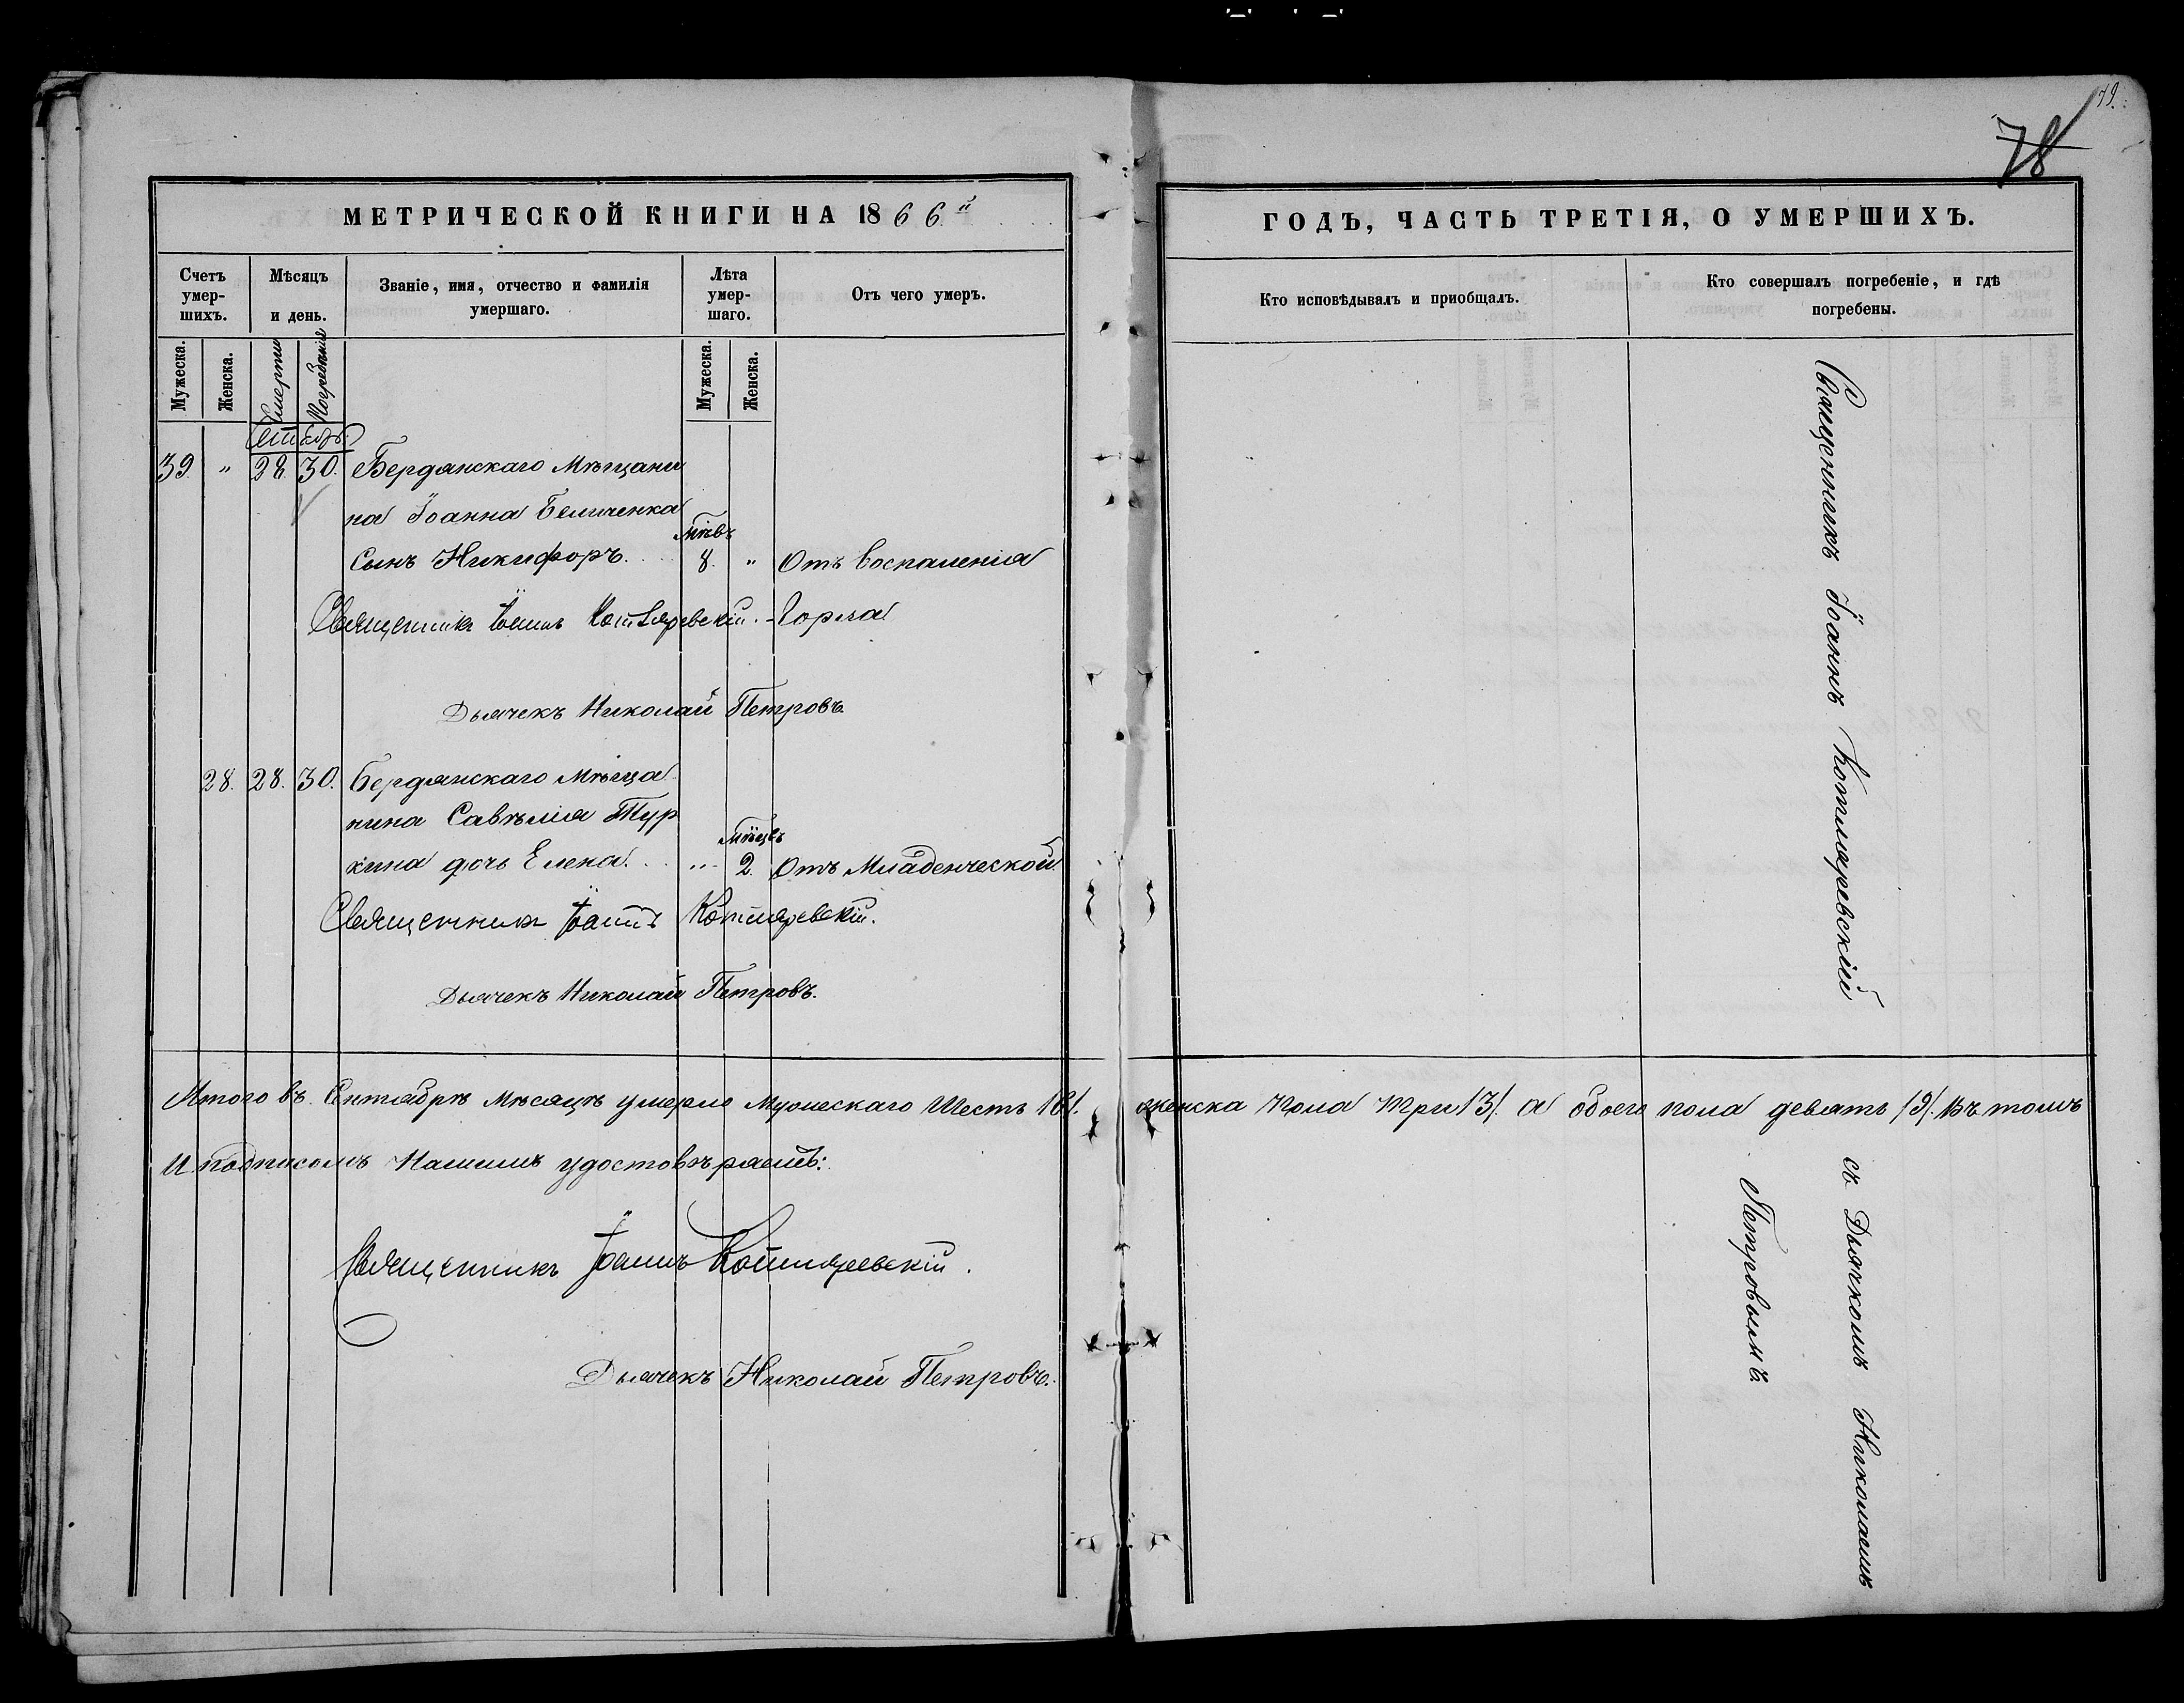 79.
78
МЕТРИЧЕСКОЙ КНИГИ НА 1866й
Счетъ умер-шихъ.
Мѣсяцъ и день.
Званіе, имя, отчество и фамилія умершаго.
Лѣта умер-шаго.
Отъ чего умеръ.
Мужеска.
Женска.
Смерти
Погребенія
Мужеска.
Женска.
39. " 28. 30. Бердянскаго Мѣщани
на Іоанна Беличенка
Мѣсв
сынъ Никифоръ. 8. " Отъ воспаленія
Священникъ Іоаннъ Котляревскій. Горла
Дьячекъ Николай Петровъ.
28. 28. 30. Бердянскаго Мѣща
нина Савѣлія Тур
Мѣсцв
кина дочь Елена. " 2. Отъ Младенческой
Священникъ Іоаннъ Котляревскій.
Дьячекъ Николай Петровъ.
Итого въ Сентябрѣ мѣсяцѣ умерло Мужескаго Шесть /6/.
И подписомъ Нашимъ удостовѣряемъ:
Священникъ Іоаннъ Котляревскій.
Дьячекъ Николай Петровъ.
ГОДЪ, ЧАСТЬ ТРЕТІЯ, О УМЕРШИХЪ.
Кто исповѣдывалъ и пріобщалъ.
Кто совершалъ погребеніе, и гдѣ
погребены.
Священникъ Іоаннъ Котляревскій
женска пола три /3/. а обоего пола девять /9/. Въ томъ
съ Дьячкомъ Николаемъ
Петровымъ